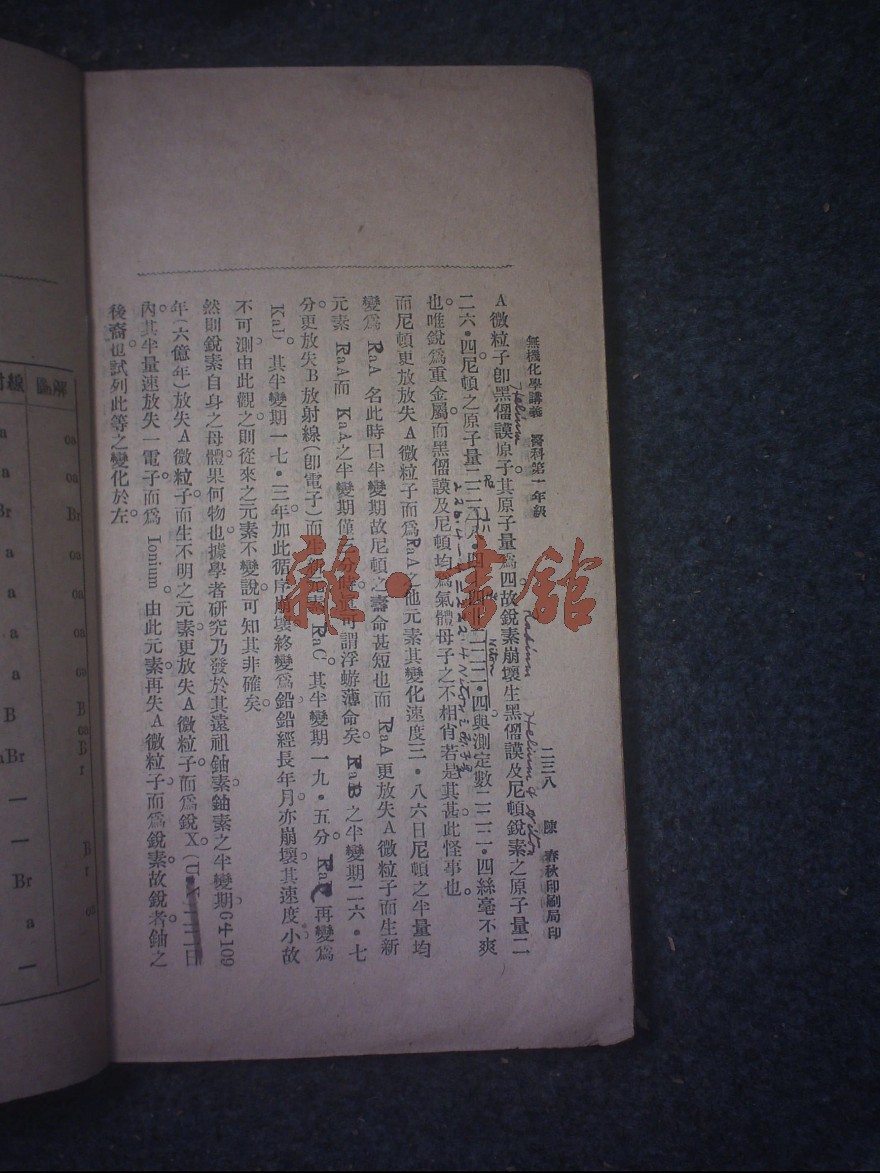 無機化學講義 醫科第一年級 二三八 陳 春秋印刷局印
A微粒子卽黑僱謨原子其原子量爲四故銳素崩壞生黑僱謨及尼頓銳素之原子量二
Helium Radium Helium & Niton
二六・四尼頓之原子量 二二二・四與測定數二二二・四絲毫不爽
Niton
也唯銳爲重金屬而黑僱謨及尼頓均爲氣體母子之不相肖若是其甚此怪事也。
而尼頓更放放失A微粒子而爲RaA之他元素其變化速度三・八六日尼頓之半量均
變爲 RaA 名此時曰半變期故尼頓之壽命甚短也而 RaA 更放失A微粒子而生新
元素 RaA而 RaA之半變期僅三分時眞可謂浮蝣薄命矣。RaB 之半變期二六・七
分。更放失B放射線(卽電子)而生新元素 RaC。其半變期一九・五分。再變爲
RaD。其半變期一七・三年加此循序崩壞終變爲鉛鉛經長年月亦崩壞其速度小故
不可測由此觀之則從來之元素不變說可知其非確矣。
然則銳素自身之母體果何物也據學者研究乃發於其遠祖鈾素鈾素之半變期6+109
年(六億年)放失A微粒子而生不明之元素更放失A微粒子而爲銳X(U X)二二日
內其半量速放失一電子而爲 Ionium 由此元素再失A微粒子而爲銳素故銳者鈾之
後裔也試列此等之變化於左
射線 圖解
a oa
a oa
Br Br
a oa
a oa
a oa
a oa
B B
aBr oa B r
—
Br B r
a oa
— —
雜・書館